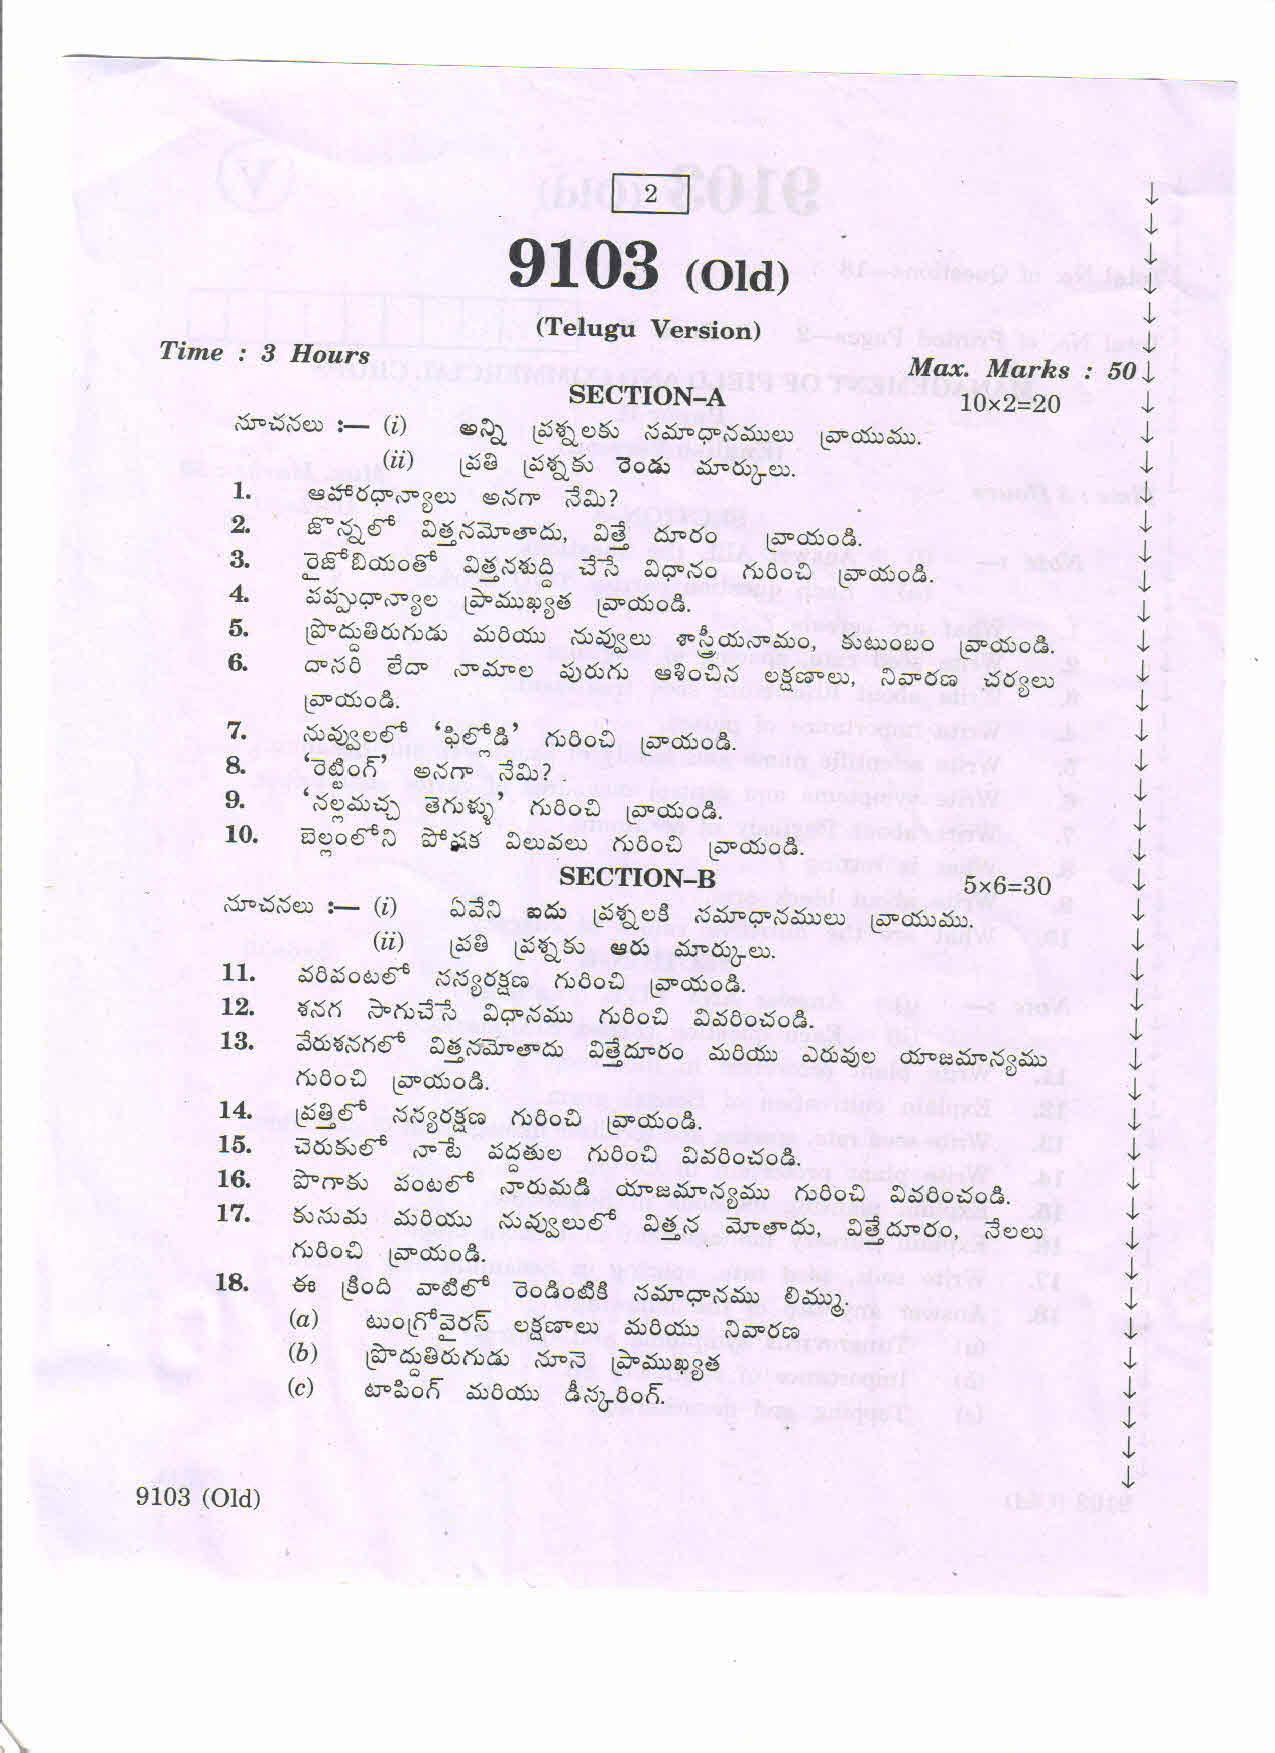 2
9103 (Old)
(Telugu Version)
Time : 3 Hours
Max. Marks : 50
SECTION–A
10×2=20
సూచనలు :— (i) అన్ని ప్రశ్నలకు సమాధానములు వ్రాయుము.
(ii) ప్రతి ప్రశ్నకు రెండు మార్కులు.
1. ఆహారధాన్యాలు అనగా నేమి?
2. జొన్నలో విత్తనమోతాదు, విత్తే దూరం వ్రాయండి.
3. రైజోబియంతో విత్తనశుద్ది చేసే విధానం గురించి వ్రాయండి.
4. పప్పుధాన్యాల ప్రాముఖ్యత వ్రాయండి.
5. ప్రొద్దుతిరుగుడు మరియు నువ్వులు శాస్త్రీయనామం, కుటుంబం వ్రాయండి.
6. దాసరి లేదా నామాల పురుగు ఆశించిన లక్షణాలు, నివారణ చర్యలు
వ్రాయండి.
7. నువ్వులలో ‘ఫిల్లోడి’ గురించి వ్రాయండి.
8. ‘రెట్టింగ్’ అనగా నేమి?
9. ‘నల్లమచ్చ తెగుళ్ళు’ గురించి వ్రాయండి.
10. బెల్లంలోని పోషక విలువలు గురించి వ్రాయండి.
SECTION–B
5×6=30
సూచనలు :— (i) ఏవేని ఐదు ప్రశ్నలకి సమాధానములు వ్రాయుము.
(ii) ప్రతి ప్రశ్నకు ఆరు మార్కులు.
11. వరిపంటలో సస్యరక్షణ గురించి వ్రాయండి.
12. శనగ సాగుచేసే విధానము గురించి వివరించండి.
13. వేరుశనగలో విత్తనమోతాదు విత్తేదూరం మరియు ఎరువుల యాజమాన్యము
గురించి వ్రాయండి.
14. ప్రత్తిలో సస్యరక్షణ గురించి వ్రాయండి.
15. చెరుకులో నాటే పద్దతుల గురించి వివరించండి.
16. పొగాకు పంటలో నారుమడి యాజమాన్యము గురించి వివరించండి.
17. కుసుమ మరియు నువ్వులులో విత్తన మోతాదు, విత్తేదూరం, నేలలు
గురించి వ్రాయండి.
18. ఈ క్రింది వాటిలో రెండింటికి సమాధానము లిమ్ము.
(a) టుంగ్రోవైరస్ లక్షణాలు మరియు నివారణ
(b) ప్రొద్దుతిరుగుడు నూనె ప్రాముఖ్యత
(c) టాపింగ్ మరియు డీస్కరింగ్.
9103 (Old)